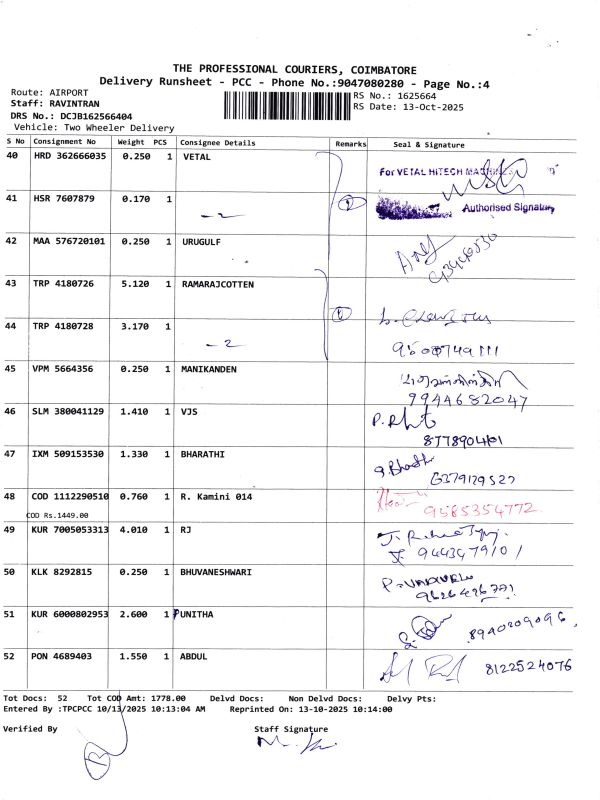 THE PROFESSIONAL COURIERS, COIMBATORE
Delivery Runsheet - PCC - Phone No.:9047080280 - Page No.:4
Route: AIRPORT
RS No.: 1625664
Staff: RAVINTRAN
RS Date: 13-Oct-2025
DRS No.: DCJB162566404
Vehicle: Two Wheeler Delivery
S No Consignment No Weight PCS Consignee Details Remarks Seal & Signature
40 HRD 362666035 0.250 1 VETAL
For VETAL HITECH
41 HSR 7607879 0.170 1
- 2
Authorised Signatory
42 MAA 576720101 0.250 1 URUGULF
43 TRP 4180726 5.120 1 RAMARAJCOTTEN
44 TRP 4180728 3.170 1
- 2
9500749111
45 VPM 5664356 0.250 1 MANIKANDEN
9944682047
46 SLM 380041129 1.410 1 VJS
8778904101
47 IXM 509153530 1.330 1 BHARATHI
6379129527
48 COD 1112290510 0.760 1 R. Kamini 014
9585354772
COD Rs.1449.00
49 KUR 7005053313 4.010 1 RJ
9443479101
50 KLK 8292815 0.250 1 BHUVANESHWARI
51 KUR 6000802953 2.600 1 PUNITHA
8940209096
52 PON 4689403 1.550 1 ABDUL
8122524076
Tot Docs: 52 Tot COD Amt: 1778.00 Delvd Docs: Non Delvd Docs: Delvy Pts:
Entered By :TPCPCC 10/13/2025 10:13:04 AM Reprinted On: 13-10-2025 10:14:00
Verified By Staff Signature